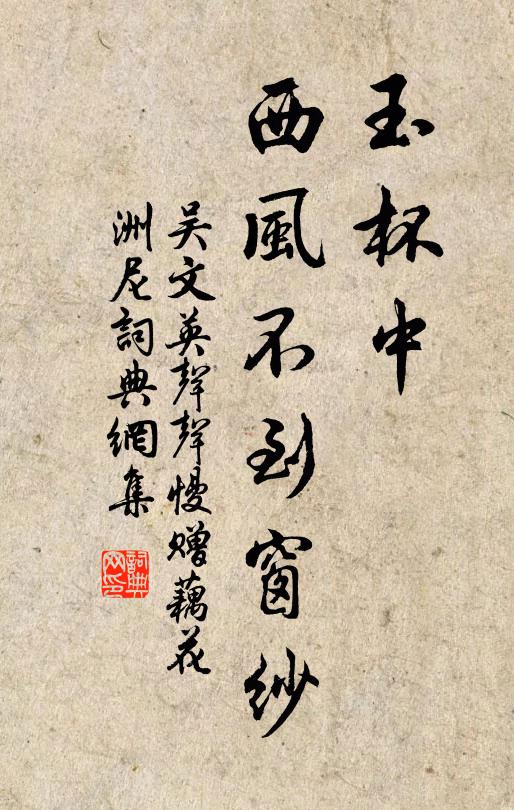 玉杯中
西風不到窗紗
吳文英聲聲慢贈藕花
洲尼詞典網集
詞典網印